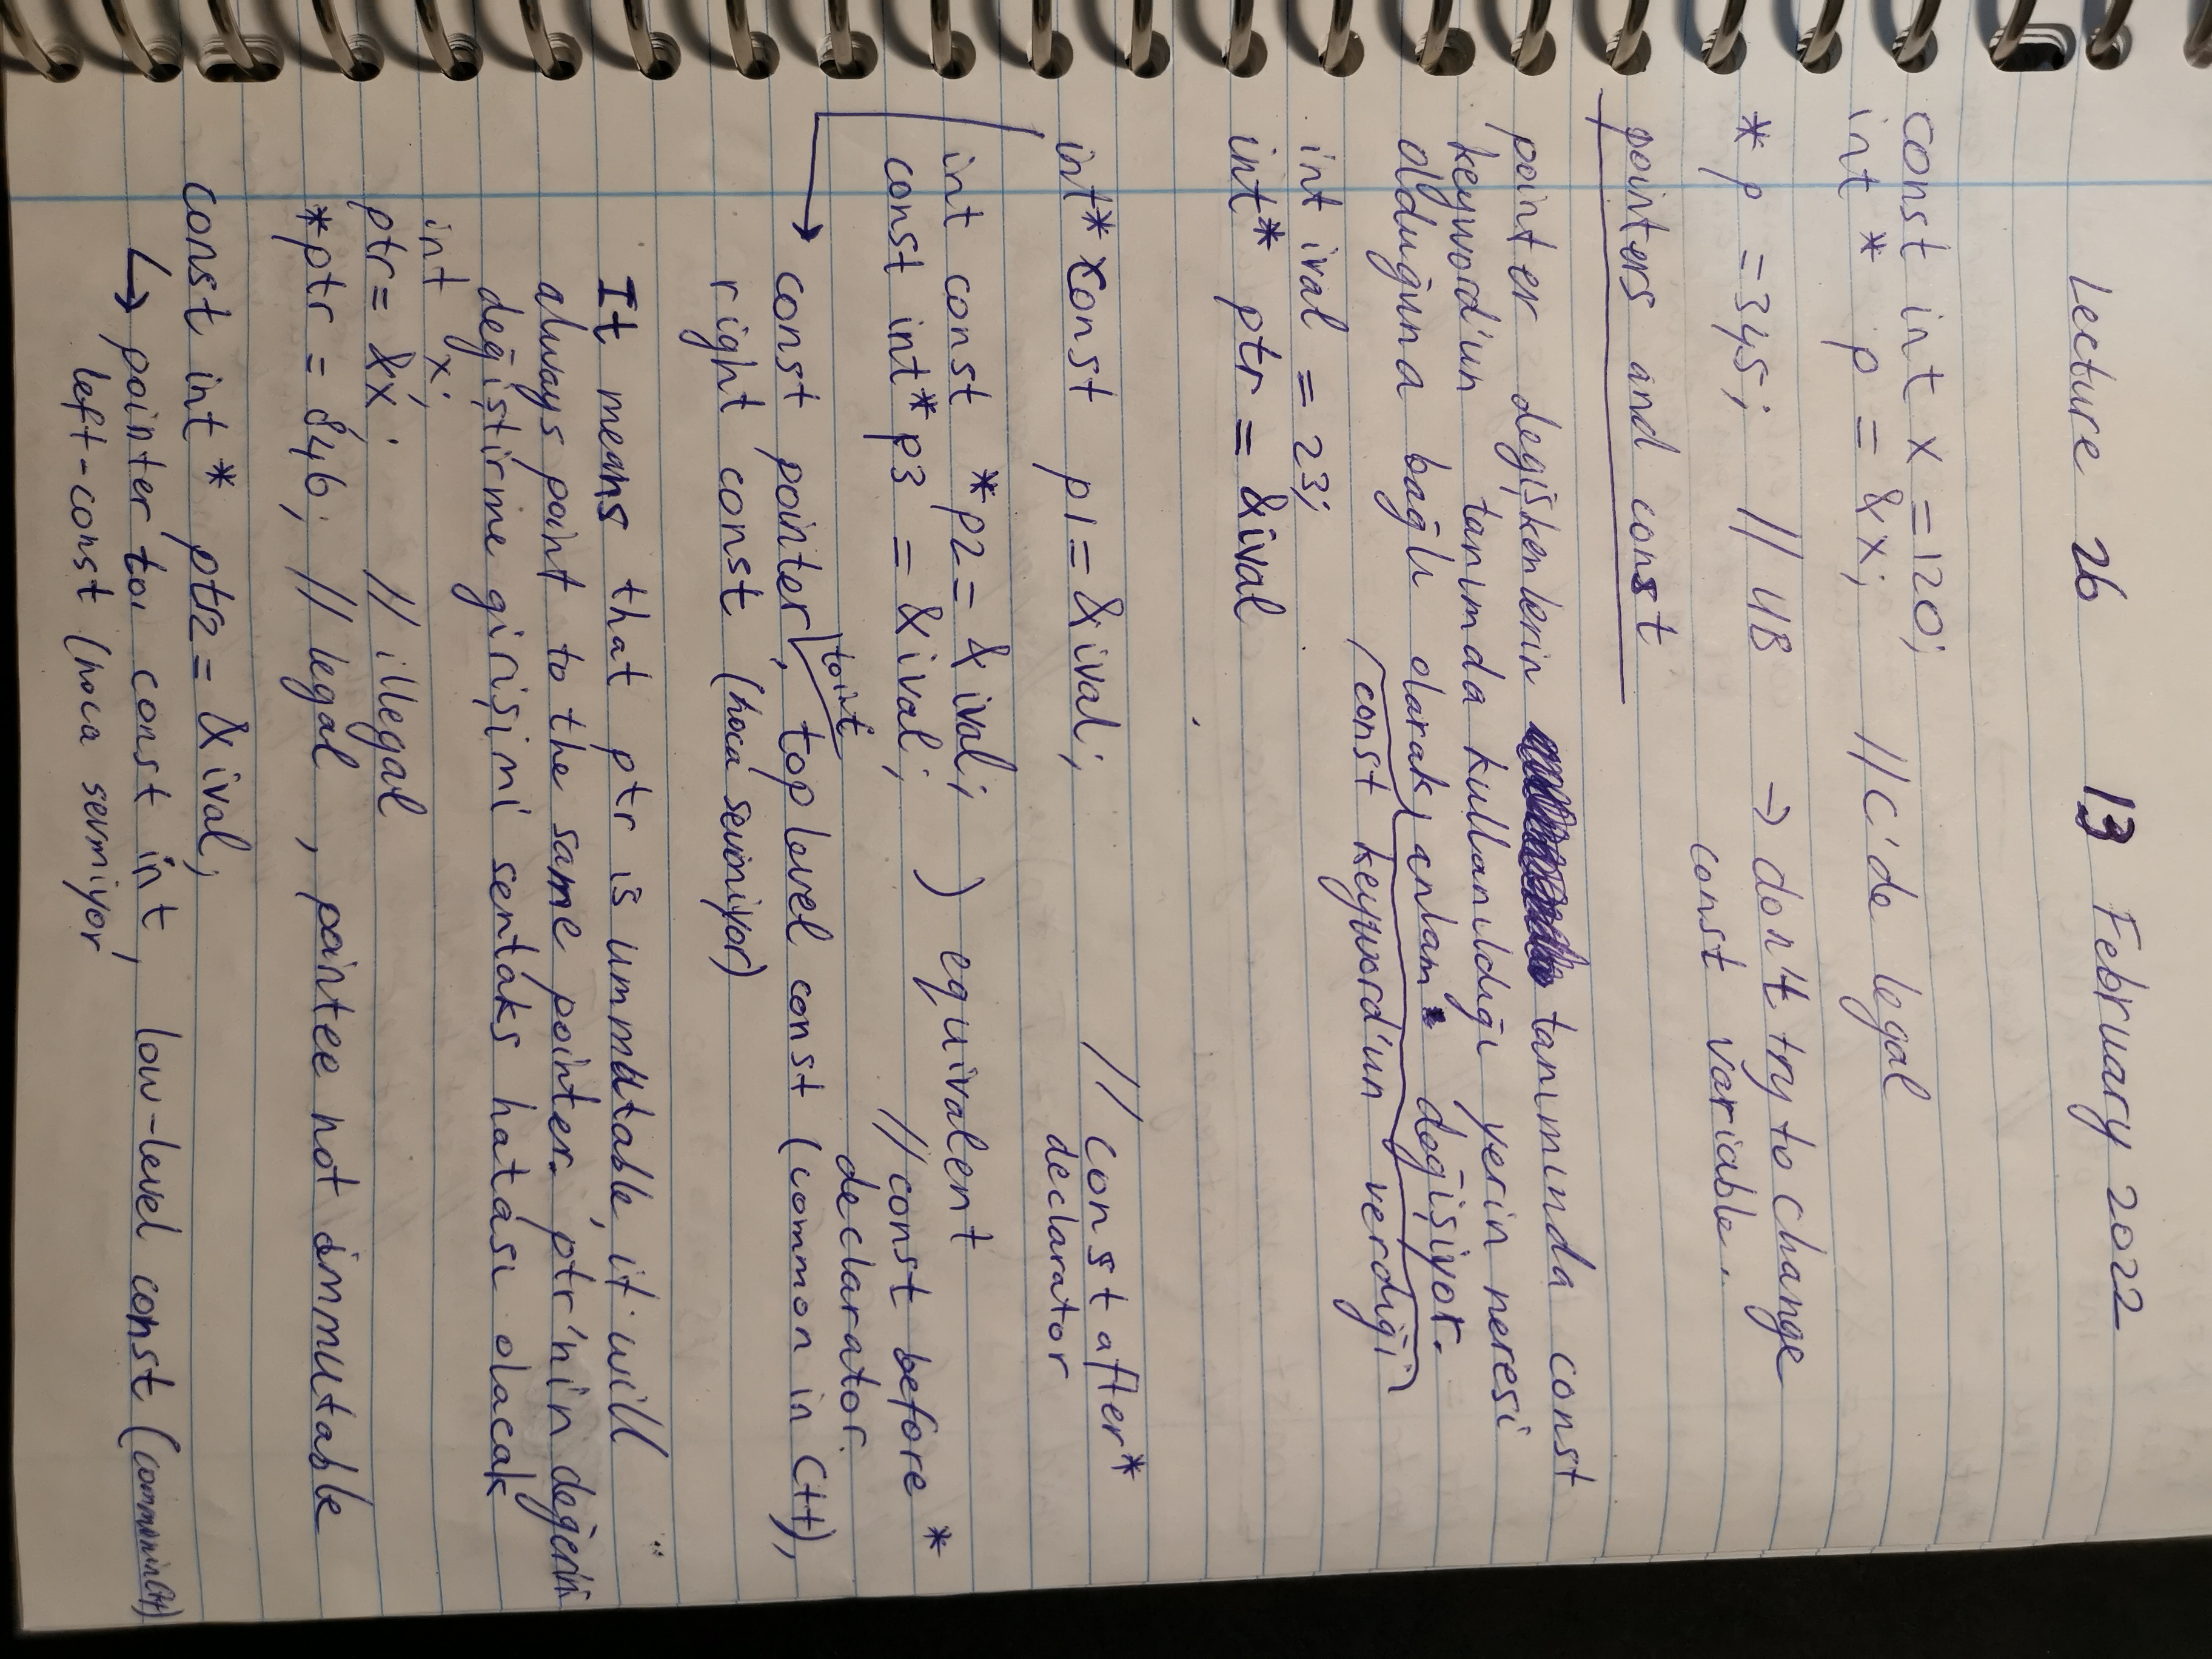 Lecture 26 13 February 2022
const int x = 120;
int * p = &x; //C'de legal
* p = 345; // UB → don't try to change
const variable.
pointers and const
pointer degişkenlerin tanımında const
keyword'un tanımda kullanıldığı yerin neresi
olduğuna bağlı olarak, anlam değişiyor.
const keyword'un verdiği
int ival = 23;
int* ptr = &ival
int* const p1 = &ival; // const after *
declarator
int const *p2 = &ival; ) equivalent
const int* p3 = &ival; // const before *
declarator.
to int
const pointer, top level const (common in C++),
right const (hoca sevmiyor)
It means that ptr is ummutable, it will
always point to the same pointer. ptr'nin değerini
değiştirme girişimi sentaks hatası olacak
int x;
ptr = &x; // illegal
*ptr = 846; // legal , pointee not immutable
const int* ptr2 = &ival;
↳ pointer to const int, low-level const (common in C++)
left-const (hoca sevmiyor